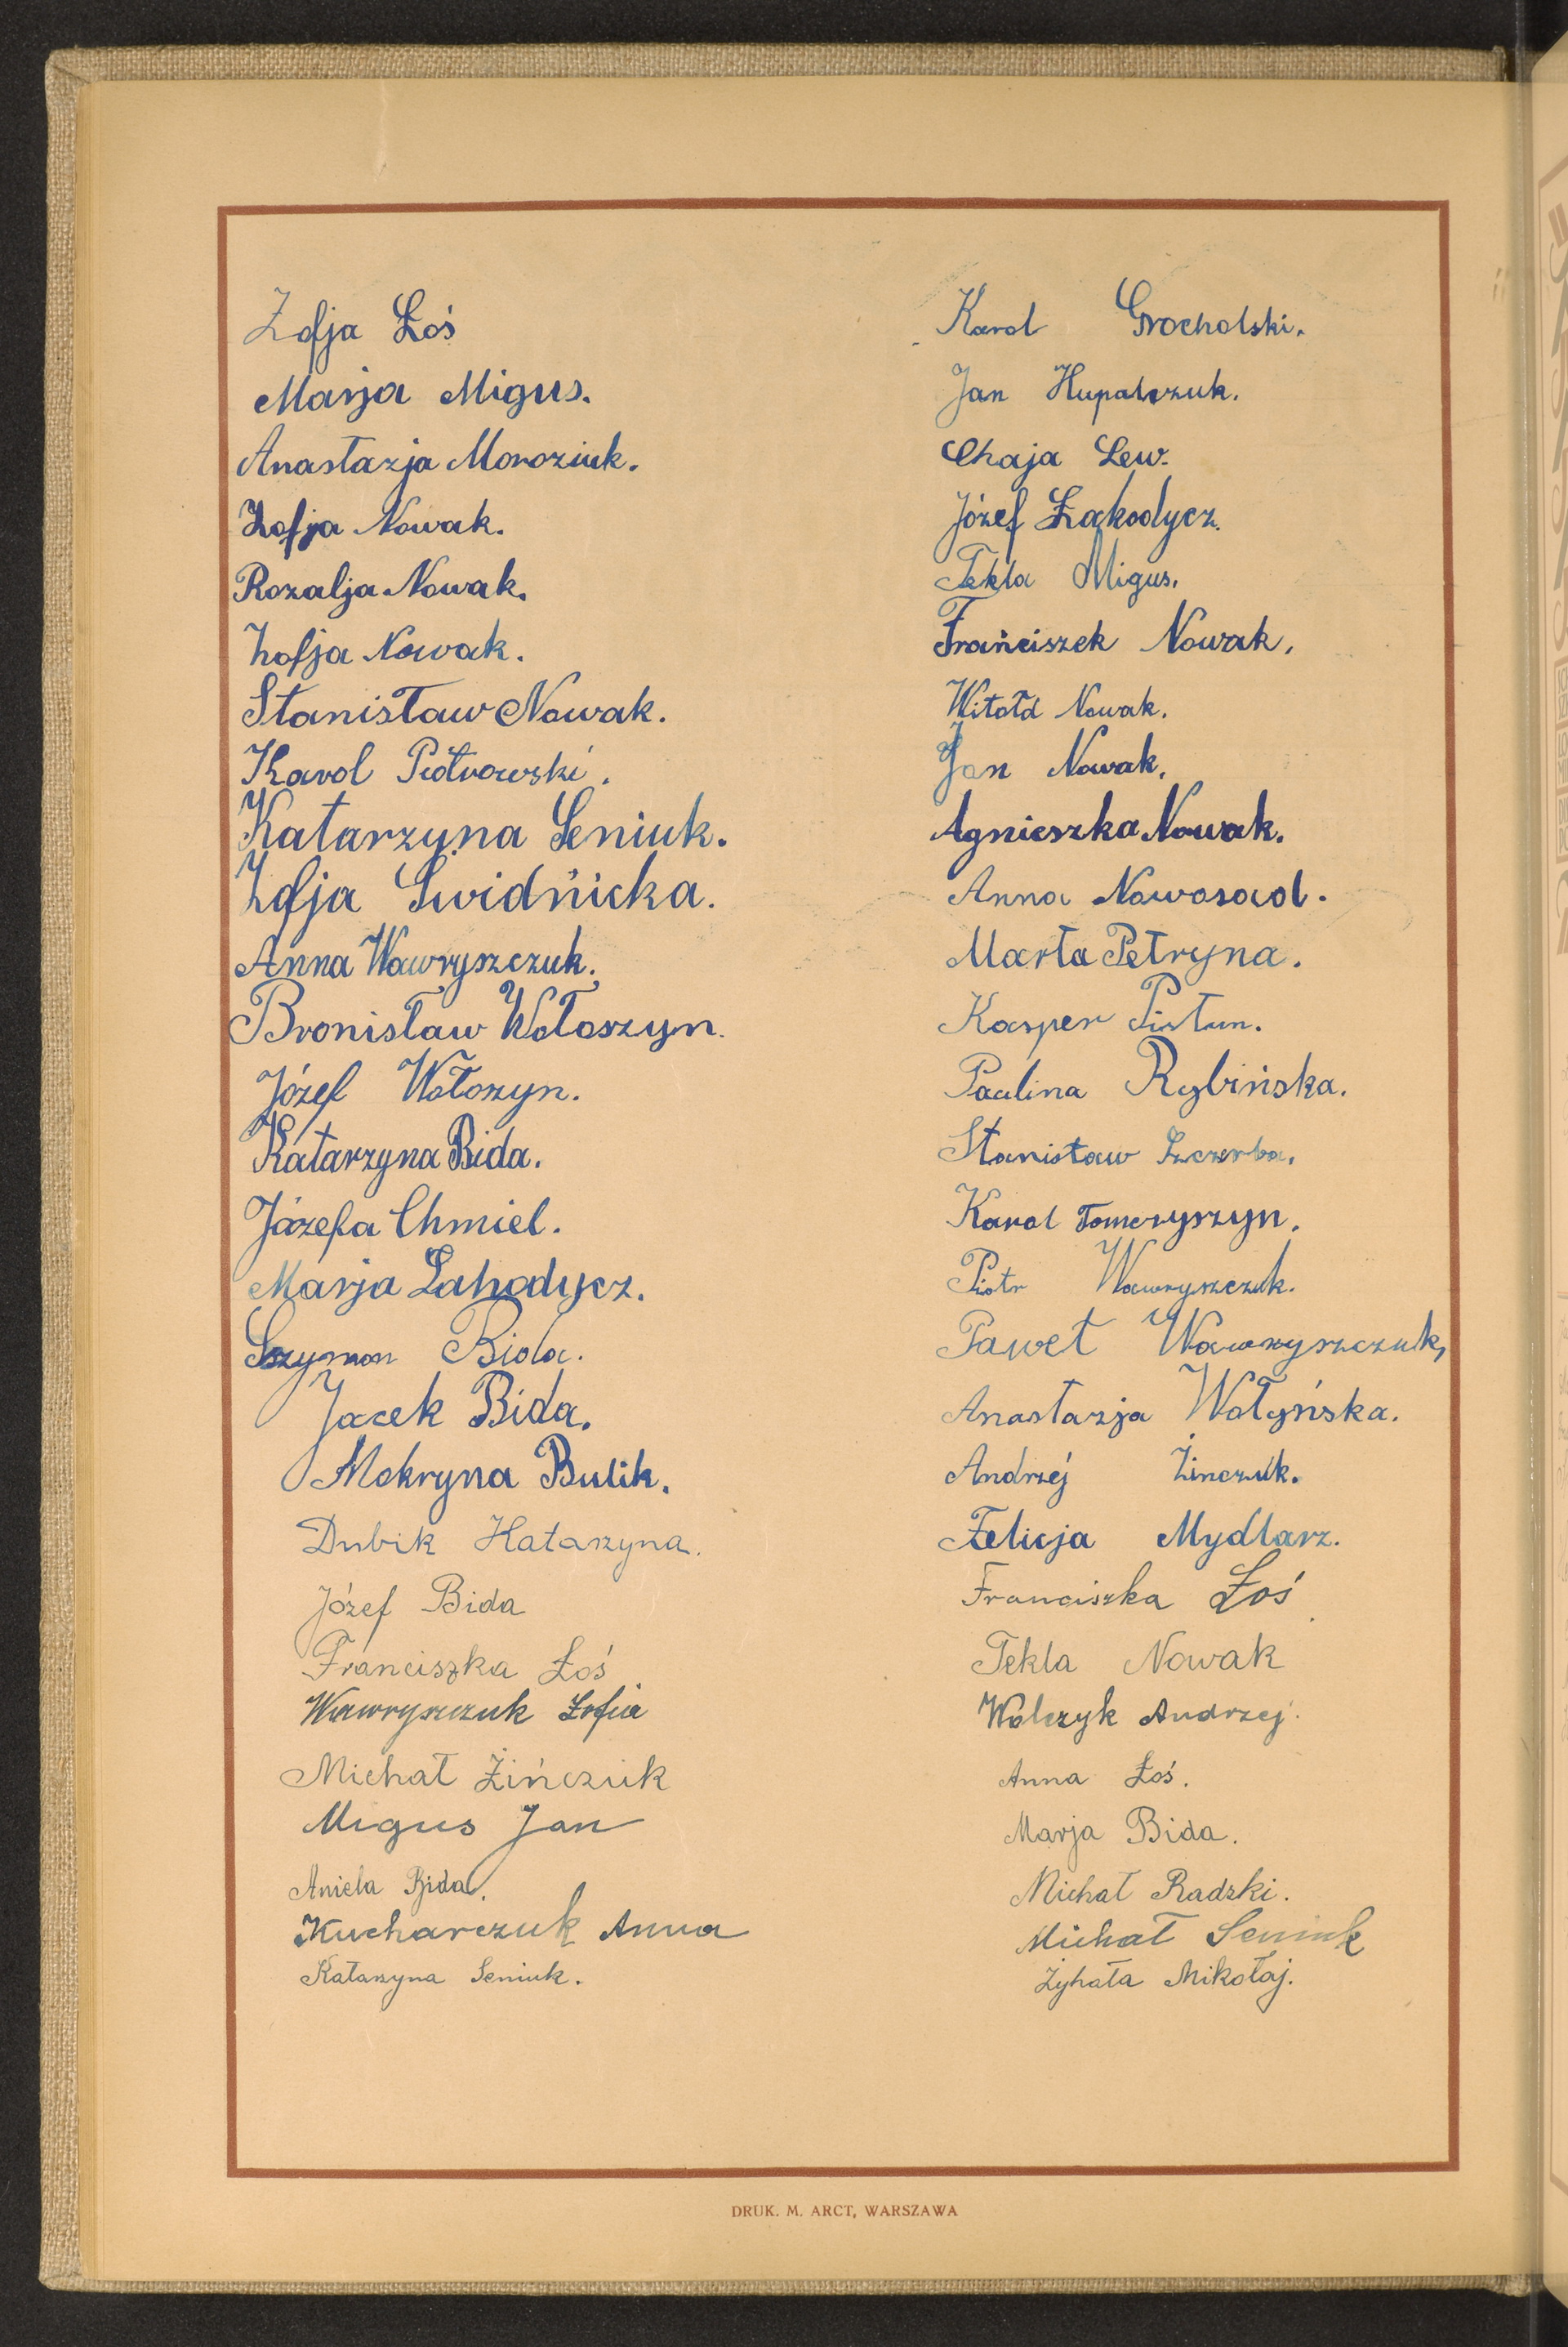 Zofja Łoś
Marja Migus.
Anastazja Moroziuk.
Zofja Nowak.
Rozalja Nowak.
Zofja Nowak.
Stanisław Nowak.
Karol Piotrowski.
Katarzyna Seniuk.
Zofja Swidńicka.
Anna Wawryszczuk.
Bronisław Wołoszyn.
Józef Wołoszyn.
Katarzyna Bida.
Józefa Chmiel.
Marja Łahodycz.
Szymon Bida.
Jacek Bida.
Mokryna Bulik.
Dubik Katarzyna.
Józef Bida
Franciszka Łoś
Wawryszczuk Zofia
Michał Żińczuk
Migus Jan
Aniela Bida.
Kucharczuk Anna
Katarzyna Seniuk.
Karol Grocholski.
Jan Hupalczuk.
Chaja Lew.
Józef Łahodycz.
Tekla Migus.
Franciszek Nowak.
Witołd Nowak.
Jan Nowak.
Agnieszka Nowak.
Anna Nowosad.
Marta Petryna.
Kasper Pistun.
Paulina Rybińska.
Stanisław Szczerba.
Karol Tomeryszyn.
Piotr Wawryszczuk.
Paweł Wawryszczuk,
Anastazja Wołyńska.
Andrzej Żinczuk.
Felicja Mydlarz.
Franciszka Łoś
Tekla Nowak
Walczyk Andrzej.
Anna Łoś.
Marja Bida.
Michał Radzki.
Michał Seniuk
Żyhała Mikołaj.
DRUK. M. ARCT, WARSZAWA